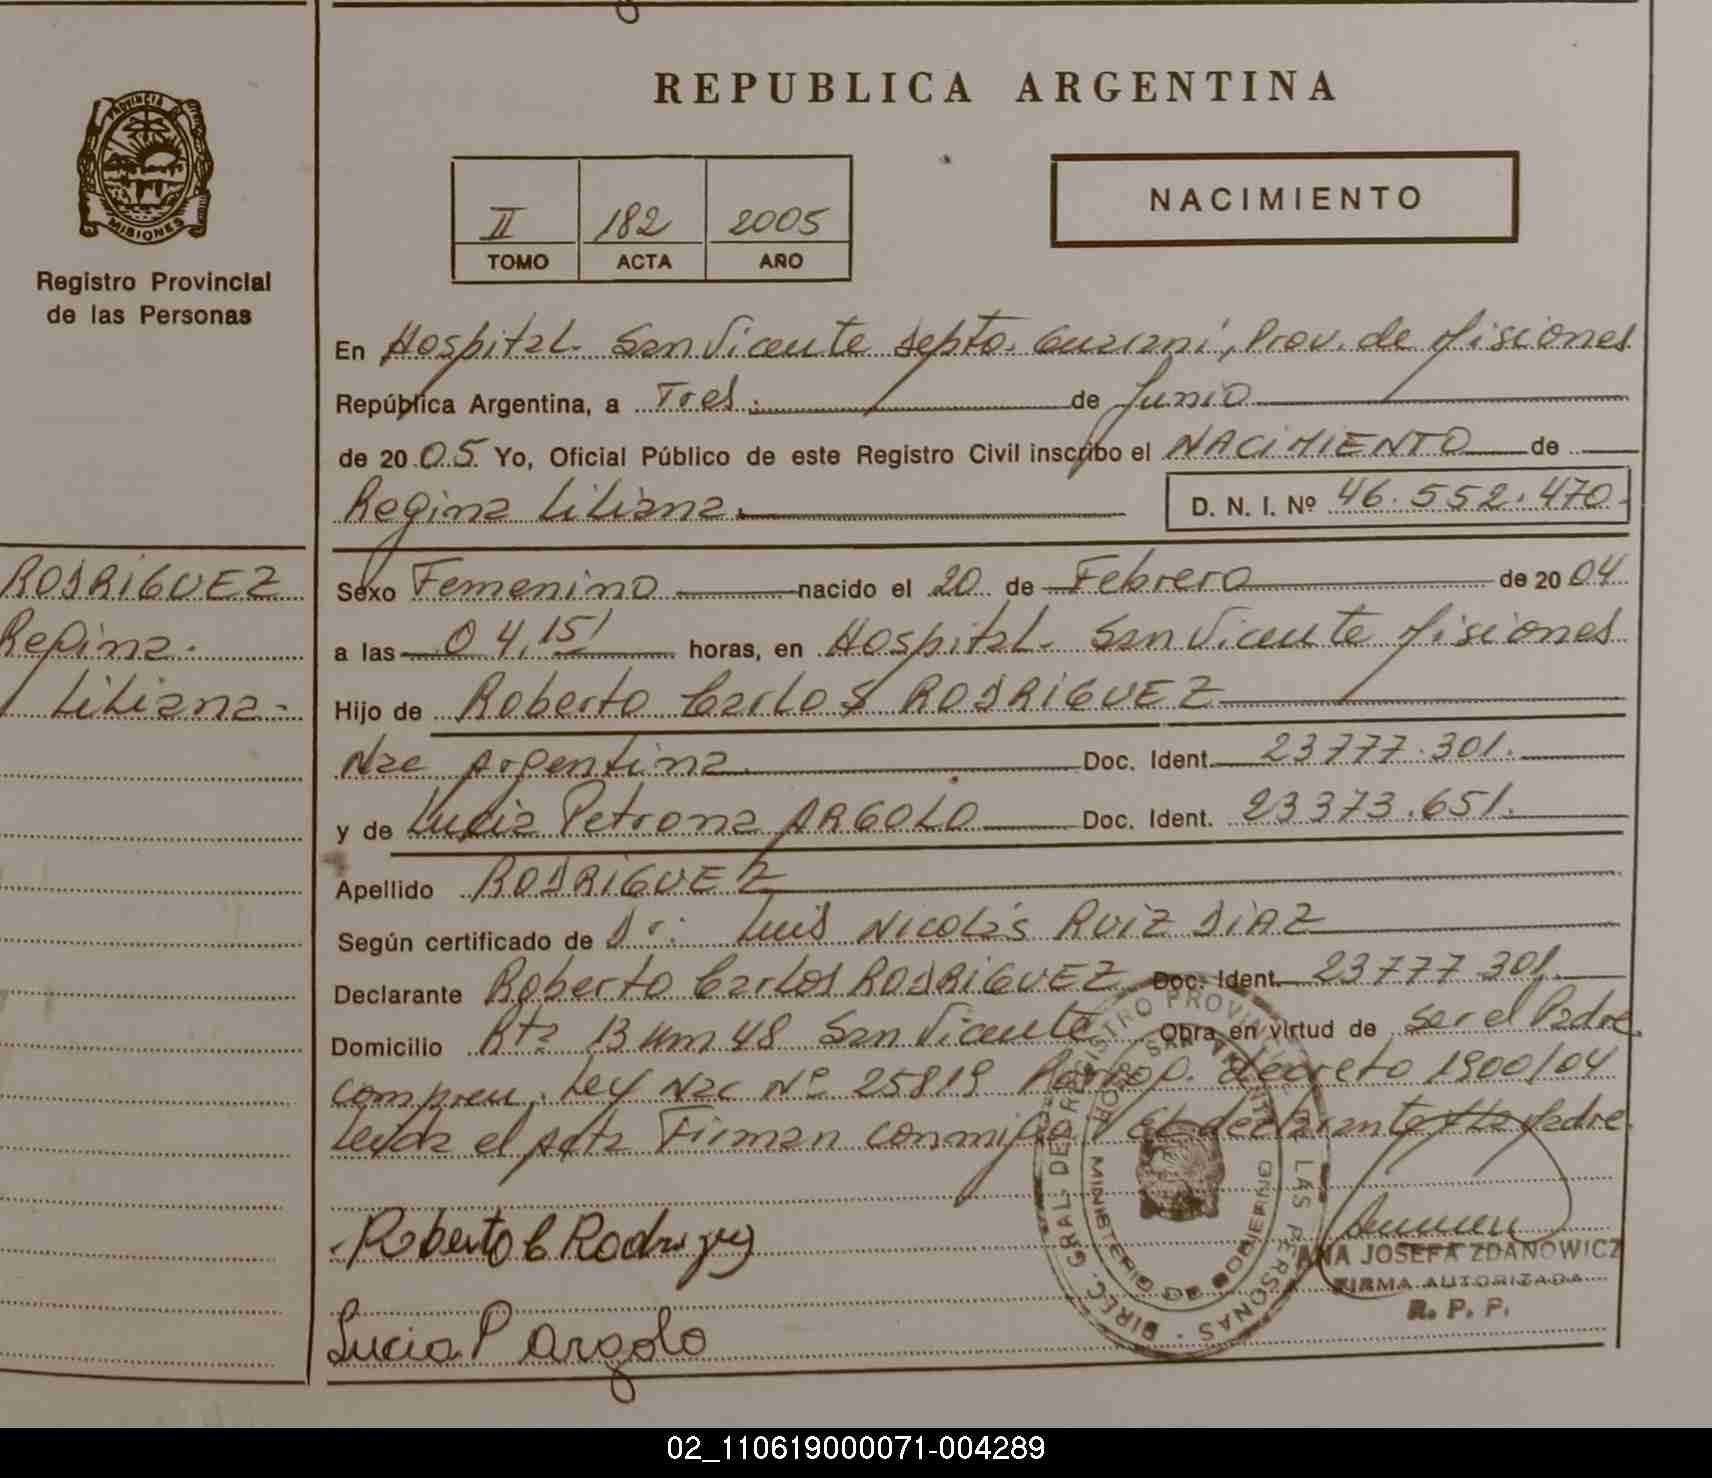 REPUBLICA ARGENTINA
PROVINCIA
MISIONES
Registro Provincial
de las Personas
II 182 2005
TOMO ACTA AÑO
NACIMIENTO
En Hospital San Vicente Depto. Guaraní, Prov. de Misiones
República Argentina, a Tres de Junio
de 2005 Yo, Oficial Público de este Registro Civil inscribo el NACIMIENTO de
Regina Liliana D. N. I. Nº 46.552.470
RODRIGUEZ
Regina
Liliana
Sexo Femenino nacido el 20 de Febrero de 2004
a las 04,15' horas, en Hospital San Vicente Misiones
Hijo de Roberto Carlos RODRIGUEZ
Nac Argentina Doc. Ident. 23777.301.
y de Lucia Petrona ARGOLO Doc. Ident. 23373.651.
Apellido RODRIGUEZ
Según certificado de Dr. Luis Nicolás RUIZ DIAZ
Declarante Roberto Carlos RODRIGUEZ Doc. Ident. 23777.301
Domicilio Rta 13 Km 48 San Vicente Obra en virtud de ser el Padre
compren. Ley Nac Nº 25819 decreto 1900/04
Leida el Acta Firman conmigo El declarante y la Padre.
Roberto C Rodriguez
Lucia P Argolo
DIREC. GRAL. DE REGISTRO PROVINCIAL DE LAS PERSONAS
MINISTERIO DE GOBIERNO
ANA JOSEFA ZDANOWICZ
FIRMA AUTORIZADA
R. P. P.
02_110619000071-004289